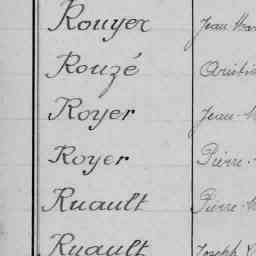 Rouyer Jean
Rouzé
Royer Jean-
Royer Pierre-
Ruault Pierre-
Ruault Joseph